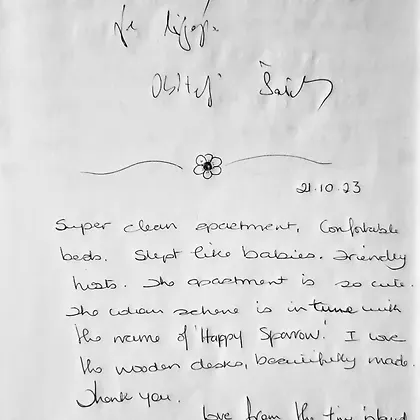 21.10.23
Super clean apartment. Comfortable
beds. Slept like babies. Friendly
hosts. The apartment is so cute.
The colour scheme is in tune with
the name of 'Happy Sparrow'. I love
the wooden desks, beautifully made.
Thank you.
Love from the tiny island